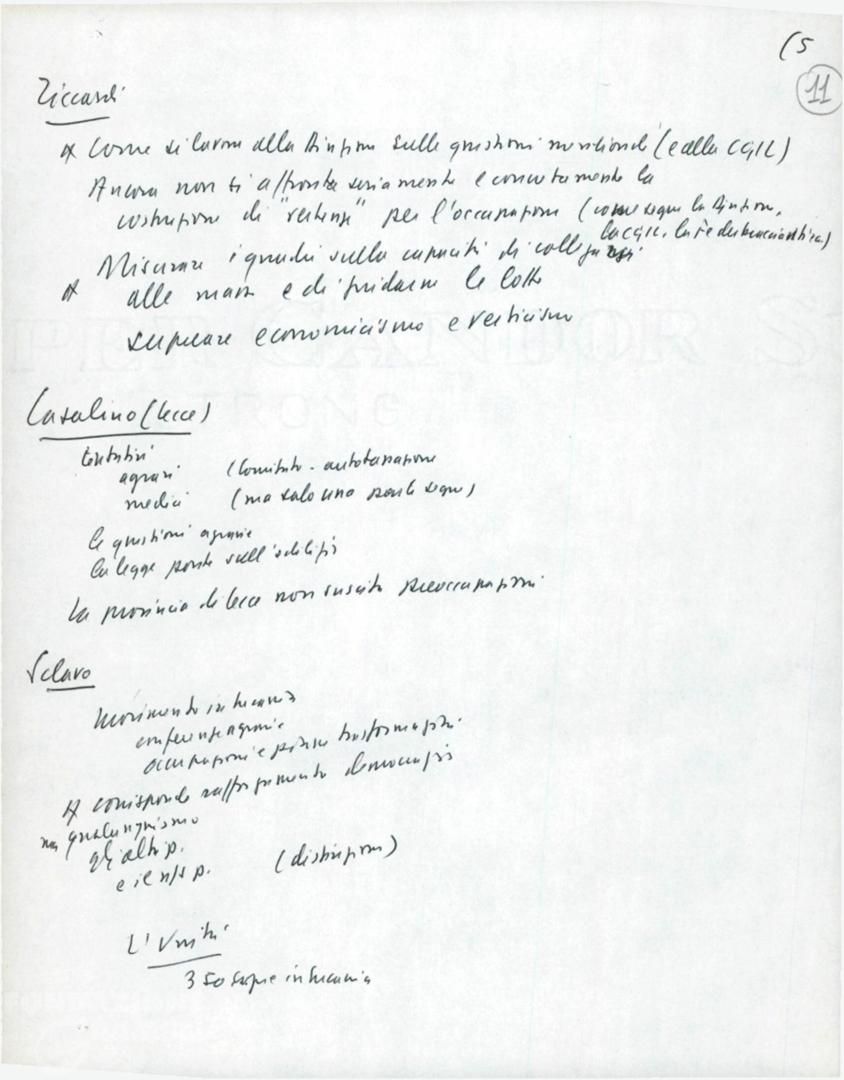 (5
11
Ziccardi
x Come si lavora alla Direzione sulle questioni meridionali (e alla CGIL)
Ancora non si affronta seriamente e concretamente la
costruzione di "vertenze" per l'occupazione (come segue la Direzione,
la CGIL, la
x Misurare i quadri sulla capacità di collegarsi
alle masse e di guidarne le lotte
superare economicismo e verticismo
Casalino (Lecce)
tentativi
agrari (Comitato - autotassazione
medici (ma solo uno
le questioni agrarie
la legge ponte sull'edilizia
La provincia di Lecce non suscita preoccupazioni
Sclavo
Movimento in Lucania
conferenze agrarie
occupazione e piano trasformazioni
x corrisponde rafforzamento democrazia
ma qualunquismo
gli altri p.
e il n/s p. (distinzioni)
L'Unità
350 copie in Lucania